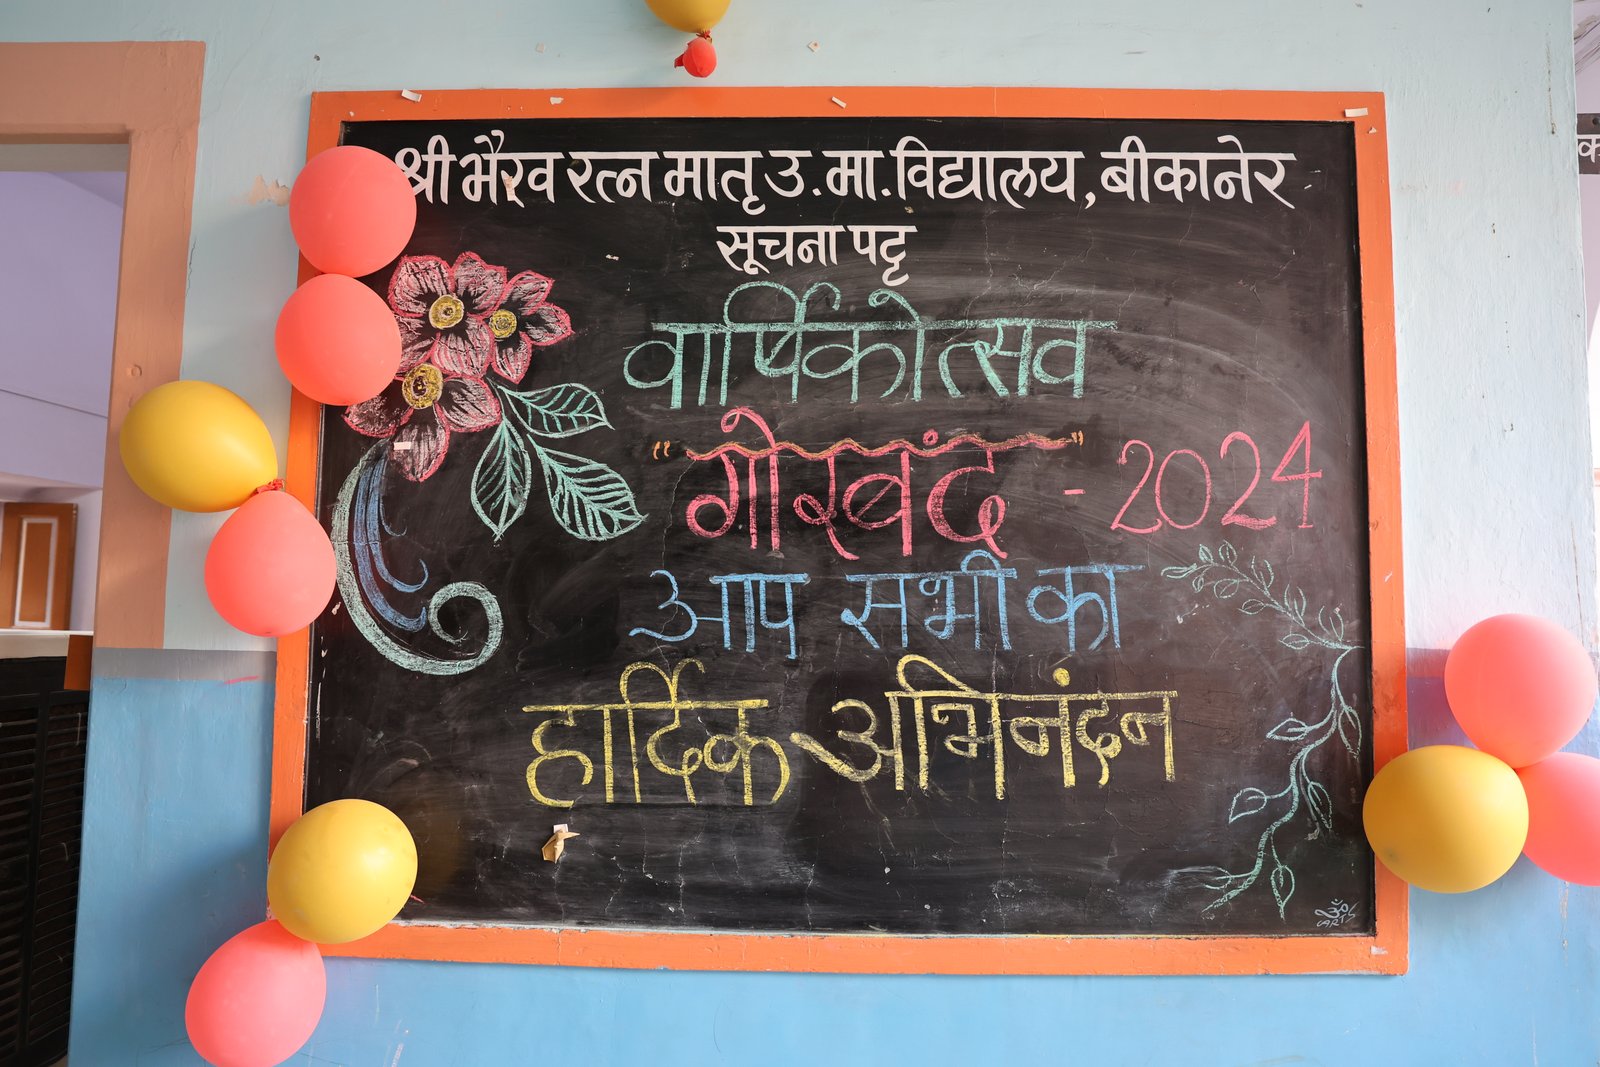 श्री भैरव रत्न मातृ उ. मा. विद्यालय, बीकानेर
सूचना पट्ट
वार्षिकोत्सव
"गोरबंद" - 2024
आप सभी का
हार्दिक अभिनंदन
ॐ
ARTS